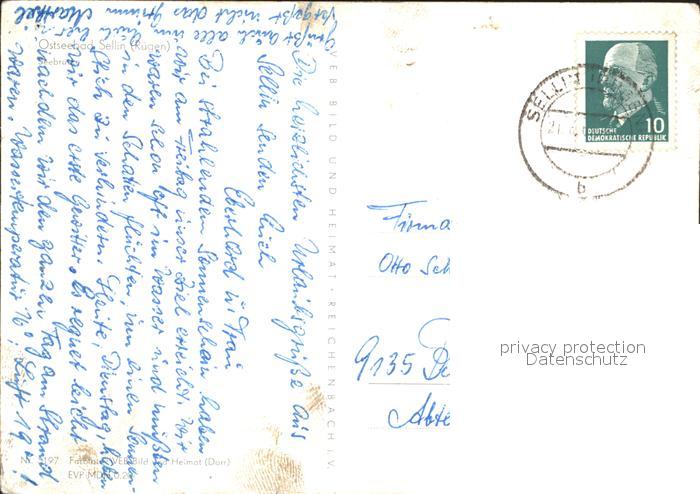 Ostseebad Sellin (Rügen)
Die herzlichsten Urlaubsgrüße aus
Sellin senden Euch
Eberhard u. Frau
Bei strahlendem Sonnenschein haben
wir am Freitag unser Ziel erreicht. Wir
waren schon oft im Wasser und mußten
in den Schatten flüchten, um einen Sonnen-
stich zu verhindern. Heute, Dienstag, haben
wir das erste Gewitter. Es regnet leicht
nachdem wir den ganzen Tag am Strand
waren. Wassertemperatur 16°! Luft 19°!
Grüßt auch alle
Vergeßt nicht das
VEB BILD UND HEIMAT · REICHENBACH I. V.
197 VEB Bild und Heimat (Darr)
EVP MDN 0,2
SELLIN
b
10
DEUTSCHE
DEMOKRATISCHE REPUBLIK
Firma
Otto Sch
9135
Abte
privacy protection
Datenschutz